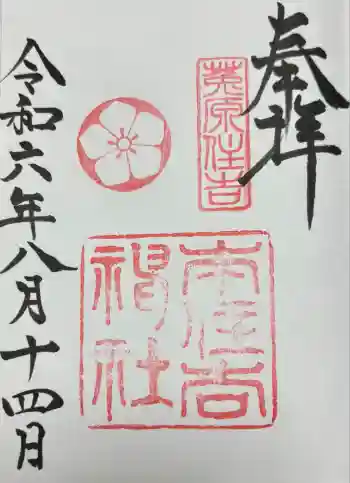 奉拝
菟原住吉
本住吉
神社
令和六年八月十四日